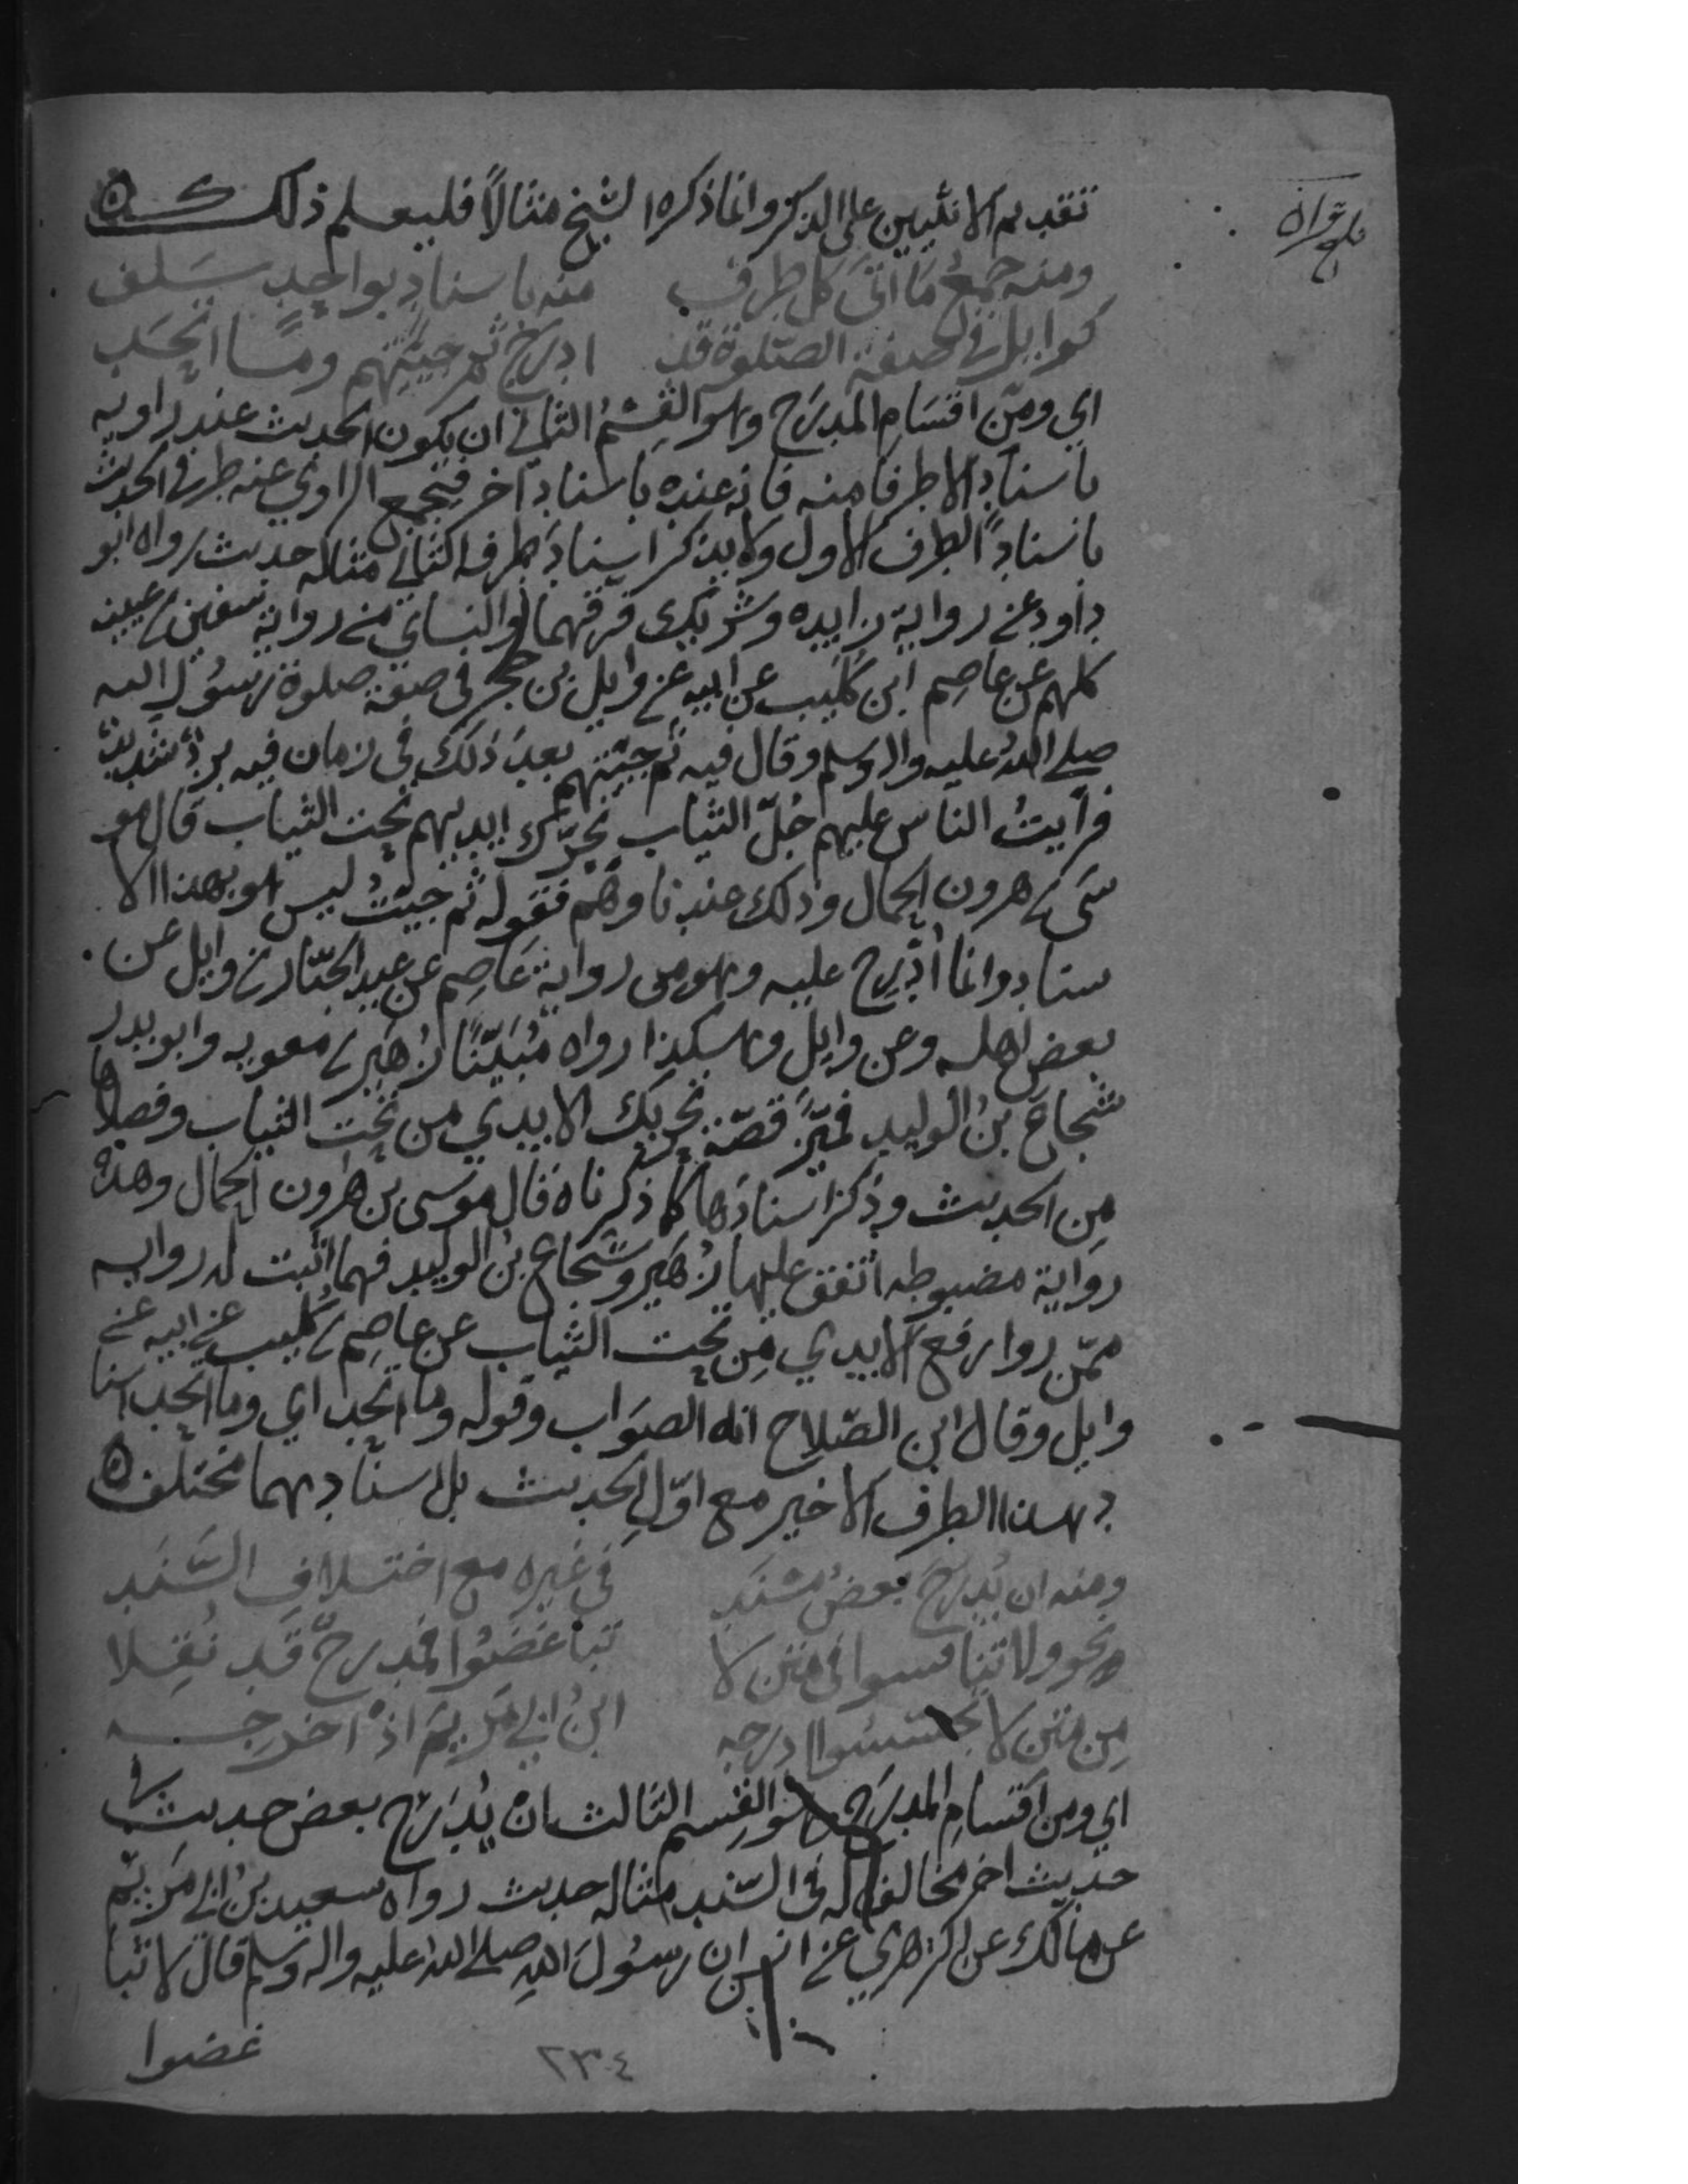 تقديم الانثيين على الذكر وانما ذكره الشيخ مثالاً فليعلم ذلك ه
ومنه جمعُ ما اتى كل طرف منه باسنادٍ بواحدٍ سَلف
كوايل في صفة الصّلوة قد ادرج ثم جيتهم ومَا اتحَد
اي ومن اقسَام المدرَج وهو القِسمُ الثاني ان يكون الحديث عند راويه
باسنادٍ الا طرفا منه فانه عنده باسناد آخر فيجمع الراوي عنه طرفي الحديث
باسنادِ الطرف الاول ولا يذكر اسنادَ طرفه الثاني مثاله حديث رواه ابو
داود عن رواية زايده وشريك فرقهما والنساي من رواية سفين بن عيينه
كلهم عن عاصم ابن كُلَيب عن ابيه عن وايل بن حجر في صفة صلوة رسُول الله
صلى اللهُ عليه واله وسلم وقال فيه ثم جيتهم بعدَ ذلك في زمان فيه بردٌ شديد
فرأيتُ الناس عليهم جُلّ الثياب تحرّك ايديهم تحت الثياب قال مو
سَى بن هرون الحمال وذلك عندنا وهم فقوله ثم جيتُ ليس هو بهذا الا
سناد وانما اُدْرِج عليه وهو من رواية عَاصِم عن عبد الجبّار بن وايل عن
بعض اهله وعن وايل وهكذا رواه مُبَيّنًا زُهَير بن معويه وابو بدر
شجاعَ بنُ الوليد فميَّز قصّة تحريك الايدي من تحت الثياب وفصلاها
مِن الحديث وذكرا اسنادَها كما ذكرناه قال موسى بن هٰرون الحمال وهذه
رواية مضبوطه اتفق عليها زُهَير وشجاع بنُ الوليد فهما اثبت له روايه
ممّن روا رفعَ الايدي مِن تحت الثياب عن عاصِم بن كليب عن ابيه عن
وايل وقال ابن الصّلاح انه الصوَاب وقوله وما اتحد اي وما اتحد اسنا
د هذا الطرف الاخير مع اوّل الحديث بل اسنادهما مختلف ه
ومنه ان يُدرَجَ بعضُ مسنَد في غيره مع اختلافِ السَّنَد
نحو ولا تنافسوا في متن لا تباغضُوا فمدرجٌ قد نُقِلا
مِن متن لا تجسّسُوا ادرجه ابنُ ابي مَريمَ اذ اخرجه
اي ومن اقسام المدرَج وهو القِسم الثالث ان يُدرَج بعض حديث في
حديث اخر مخالف له في السّند مثاله حديث رواه سعيد بن ابي مَريَم
عن مالك عن الزهري عن انس ان رسُولَ اللهِ صلى الله عليه واله وسلم قال لا تبا
غضوا
٢٣٤